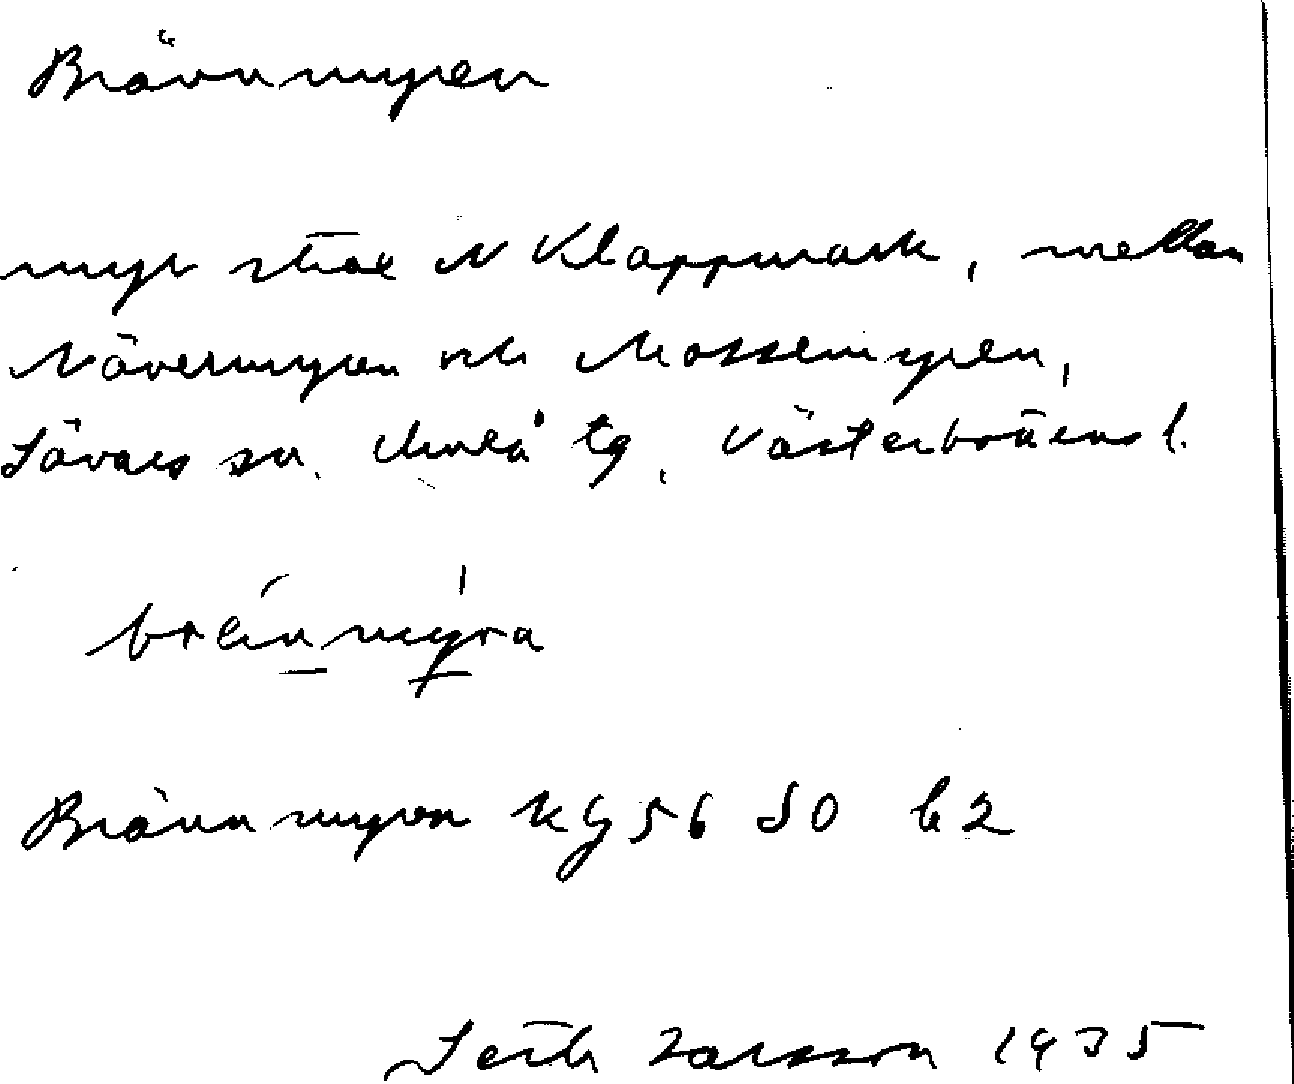 Brännmyren
myr strax N Klappmark, mellan
Nävermyren och Mossemyren,
Sävars sn. Umeå tg, Västerbottens l.
bränmyra
Brännmyren kg 56 SO b2
Seth Larsson 1935